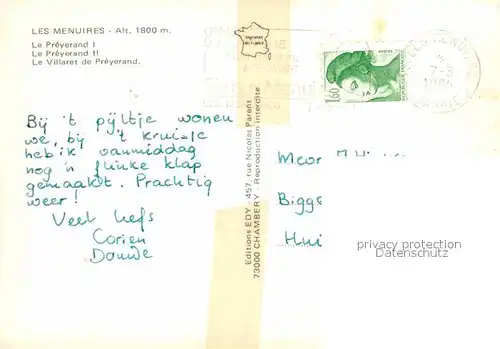 LES MENUIRES - Alt. 1800 m.
Le Préyerand I
Le Préyerand II
Le Villaret de Préyerand.
1,60
Bij 't pijltje wonen
we, bij 't kruisje
heb ik vanmiddag
nog 'n flinke klap
gemaakt. Prachtig
weer!
Veel liefs
Corien
Douwe
Editions EDY - 457, rue Nicolas Parent
73000 CHAMBERY - Reproduction interdite
Bigge
Hui
privacy protection
Datenschutz